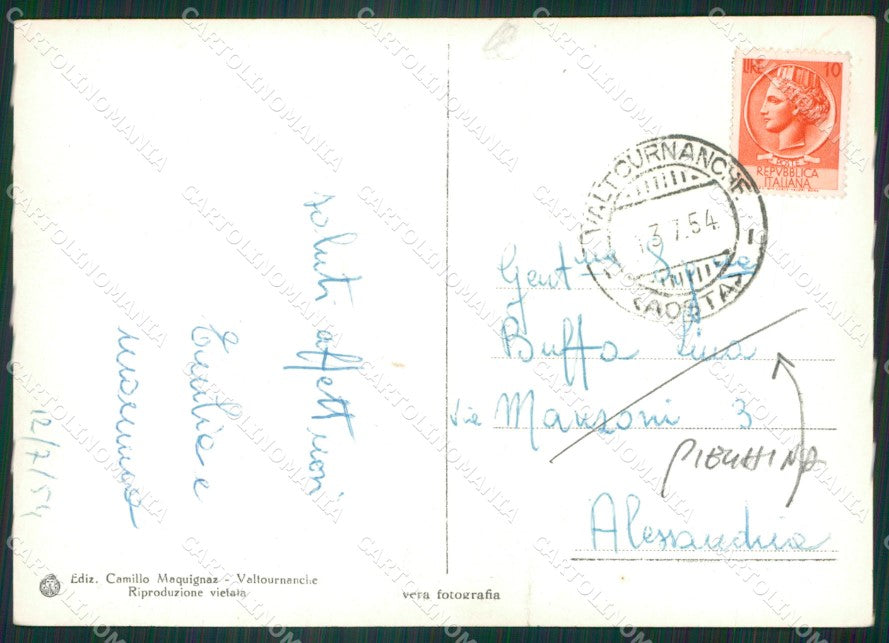 LIRE 10
POSTE
REPVBBLICA
ITALIANA
VALTOURNANCHE
13.7.54
(AOSTA)
saluti affettuosi
Emilia e
mamma
12/7/54
Gent.ma Sig.na
Buffa Lina
Via Manzoni 3
Alessandria
Ediz. Camillo Maquignaz - Valtournanche
Riproduzione vietata
vera fotografia
CARTOLINOMANIA